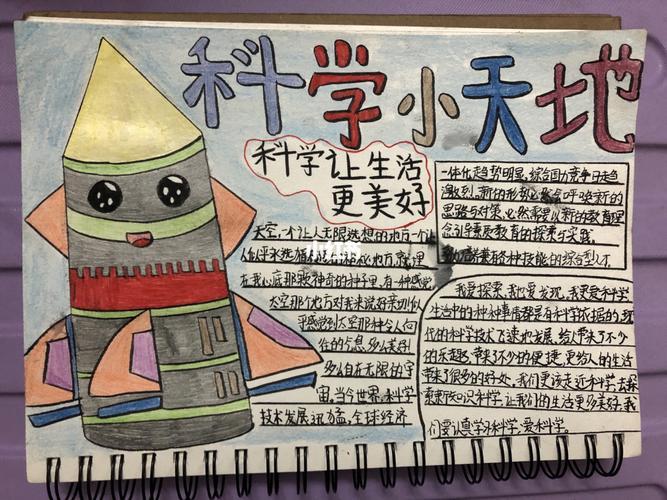 科学小天地
科学让生活
更美好
天空,一个让人无限遐想的地方一个让
人似乎永远猜
在我心底那般神奇的种子里,有一种感觉
太空那个地方对我来说好亲切,似
乎感觉到太空那种令人向
往的气息,多么美好
多么自在无限的宇
宙,当今世界,科学
技术发展迅猛,全球经济
一体化趋势明显,综合国力竞争日趋
激烈,新的形势 呼唤新的
思路与对策,必然需要以新的教育理
念引导素质教育的探索与实践
种技能的综合型人才
我爱探索,我爱发现,我更爱科学
生活中的种种事情都是有科学依据的,现
代的科学技术飞速地发展,给人带来了不少
的乐趣,带来了不少的便捷,更给人的生活
带来了很多的好处,我们更该走近科学,去探
索更多知识科学,让我们的生活更多美好,我
们要认真学习科学,爱科学。
小红书